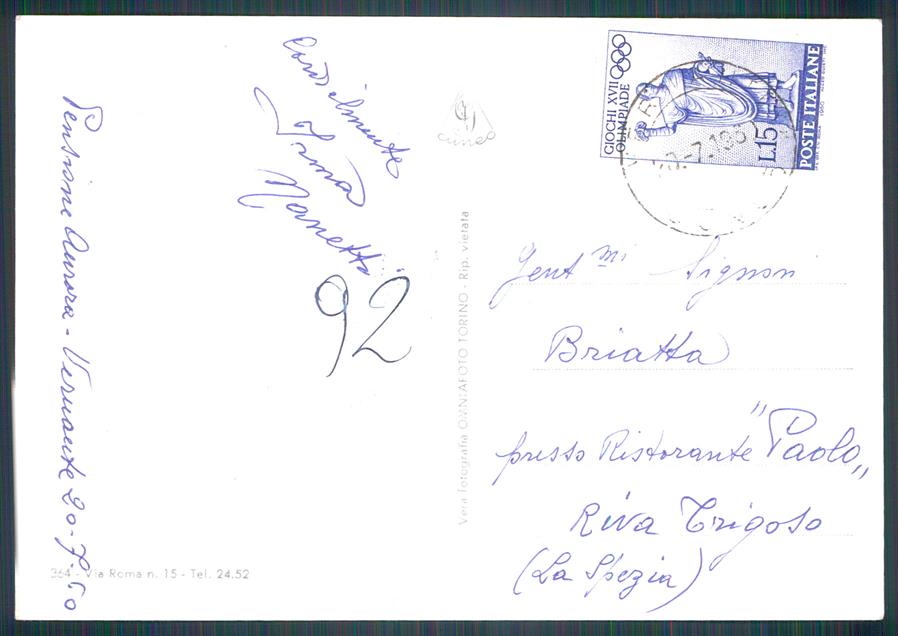 Pensione Aurora - Vernante 20-7-60
Cordialmente
Irma
Nanetti
92
cuneo
Vera Fotografia OMNIAFOTO TORINO - Rip. vietata
364 - Via Roma n. 15 - Tel. 24.52
GIOCHI XVII
OLIMPIADE
L.15
POSTE ITALIANE
Gent mi Signori
Briatta
presso Ristorante "Paolo"
Riva Trigoso
(La Spezia)